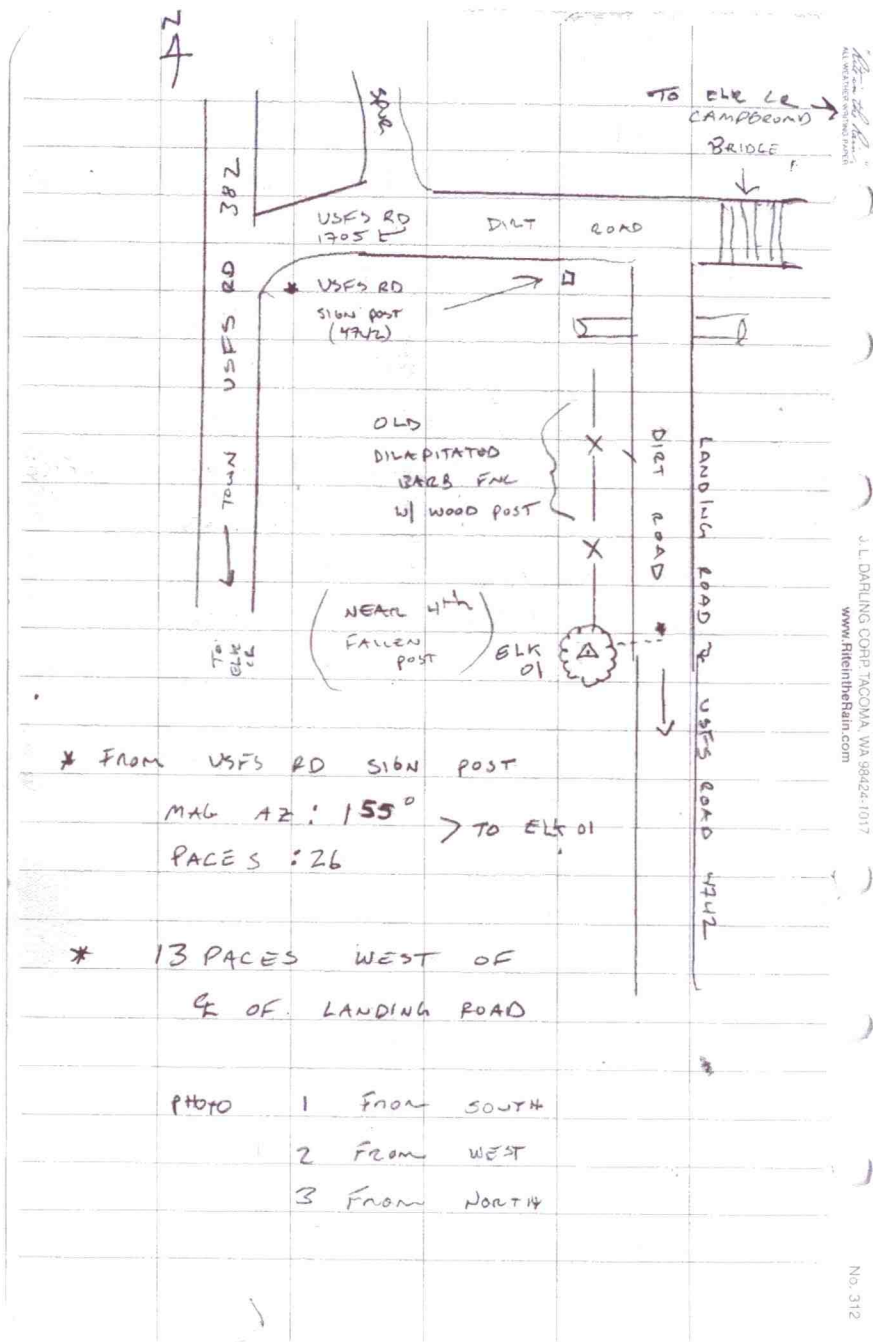 N
TO ELK CR
CAMPGROUND
BRIDGE
SPUR
USFS RD 382
USFS RD
1705 E
DIRT ROAD
* USFS RD
SIGN POST
(4742)
OLD
DILAPITATED
BARB FNC
W/ WOOD POST
DIRT ROAD
LANDING ROAD & USFS ROAD 4742
TOWN
TO
ELK
CR
(NEAR 4th
FALLEN
POST)
ELK
01
* FROM USFS RD SIGN POST
MAG AZ: 155°
> TO ELK 01
PACES : 26
* 13 PACES WEST OF
℄ OF LANDING ROAD
PHOTO 1 FROM SOUTH
2 FROM WEST
3 FROM NORTH
"Rite in the Rain"
ALL-WEATHER WRITING PAPER
J. L. DARLING CORP, TACOMA, WA 98424-1017
www.RiteintheRain.com
No. 312